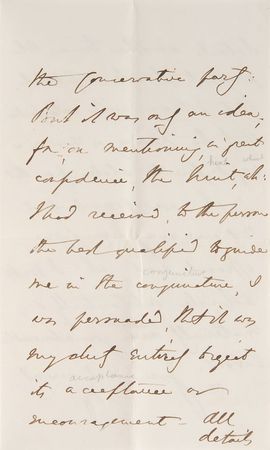 the Conservative party:
But it was only an idea;
for, on mentioning, in great
confidence, the hint, wh:
hint which
I had received, to the person
the best qualified to guide
conjuncture
me in the conjuncture, I
was persuaded, that it was
my duty entirely to reject
acceptance
its acceptance or
encouragement – All
details